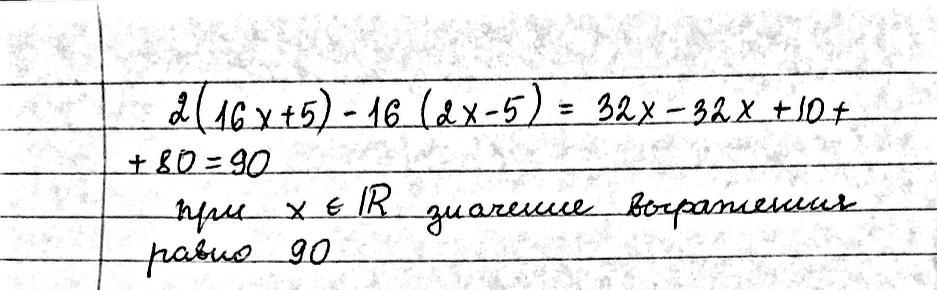 2(16x+5)-16(2x-5) = 32x-32x+10+
+80=90
при x ∈ ℝ значение выражения
равно 90